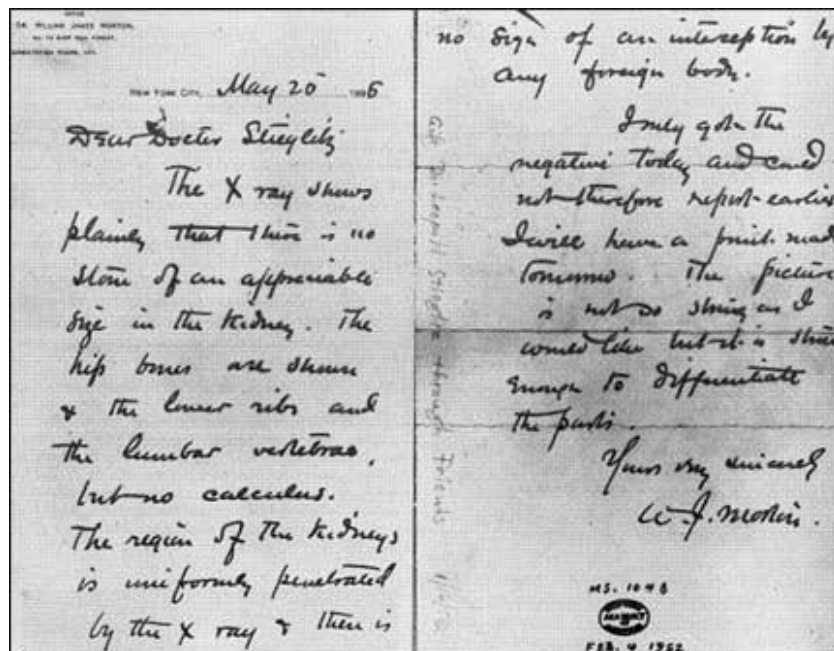 OFFICE
DR. WILLIAM JAMES MORTON,
NEW YORK CITY, May 20 1896
Dear Doctor Stieglitz
The X ray shows
plainly that there is no
stone of an appreciable
size in the Kidney. The
hip bones are shown
& the lower ribs and
the lumbar vertebrae,
but no calculus.
The region of the Kidneys
is uniformly penetrated
by the X ray & there is
no sign of an interception by
any foreign body.
I only got the
negative today and could
not therefore report earlier
I will have a print made
tomorrow. The picture
is not so strong as I
would like but it is strong
enough to differentiate
the parts.
Yours very sincerely
W. J. Morton.
through Friends
MS. 1048
FEB. 4 1952